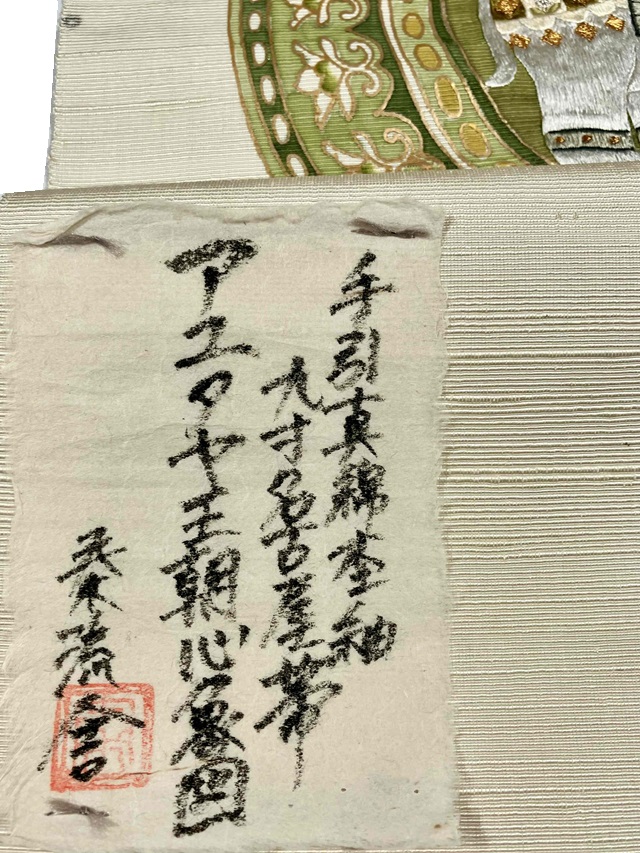 手引真綿杢紬
九寸名古屋帯
アユタヤ王朝心象図
舎